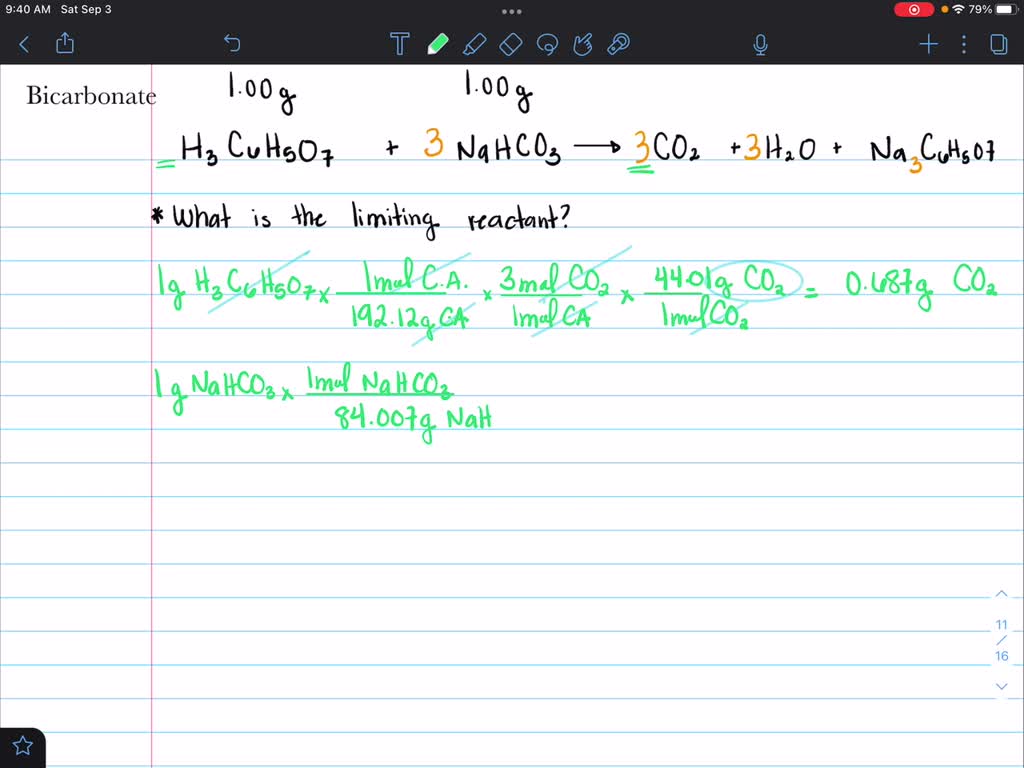 9:40 AM Sat Sep 3 79%
Bicarbonate
1.00g 1.00g
H3C6H5O7 + 3 NaHCO3 → 3CO2 + 3H2O + Na3C6H5O7
* What is the limiting reactant?
1g H3C6H5O7 x 1mol C.A. / 192.12g CA x 3mol CO2 / 1mol CA x 44.01g CO2 / 1mol CO2 = 0.687g CO2
1g NaHCO3 x 1mol NaHCO3 / 84.007g NaH
11
/
16